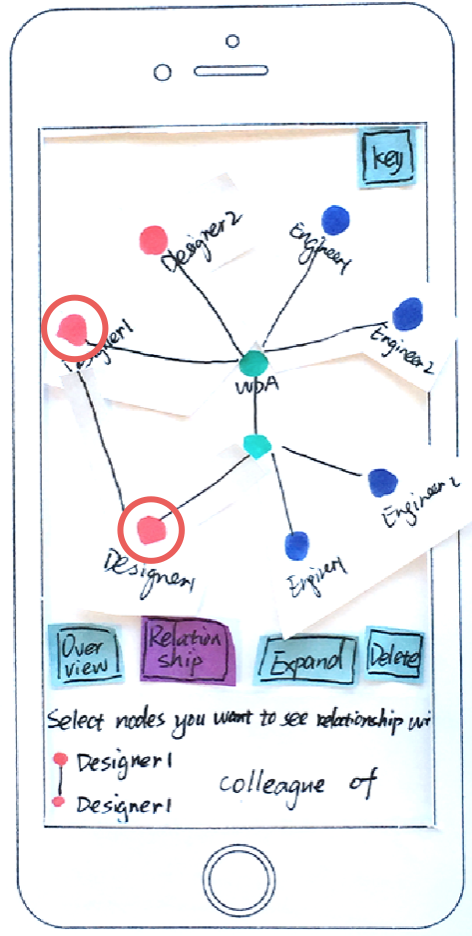 key
Designer2
Engineer1
Designer1
Engineer2
WDA
Engineer2
Designer1
Enginer1
Over
view
Relation
ship
Expand
Delete
Select nodes you want to see relationship wi
Designer1
Designer1
colleague of